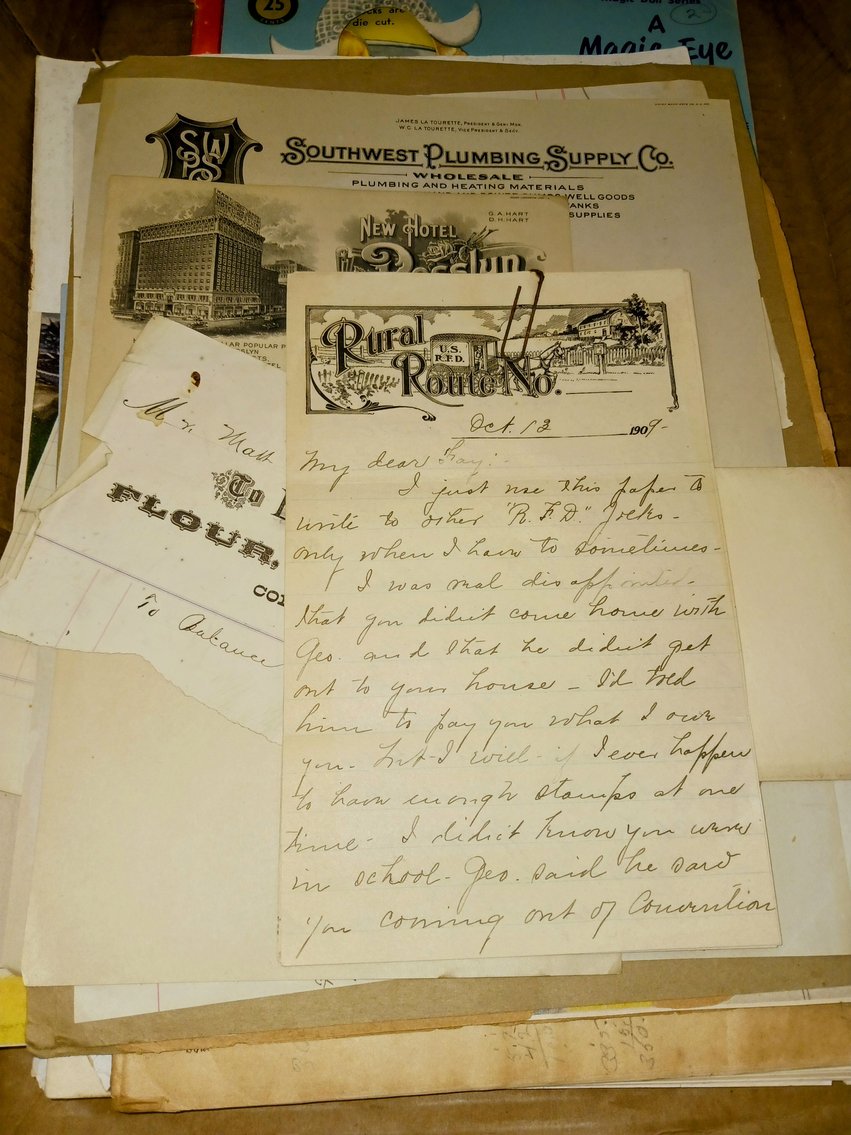 25
CENTS
cks are
die cut.
Magic Doll Series
2
A
Magic Eye
JAMES LA TOURETTE, PRESIDENT & GENL MGR.
W. C. LA TOURETTE, VICE PRESIDENT & SECY.
SWPS
SOUTHWEST PLUMBING SUPPLY CO.
WHOLESALE
PLUMBING AND HEATING MATERIALS
WELL GOODS
ANKS
SUPPLIES
G. A. HART
D. H. HART
NEW HOTEL
Rosslyn
LAR POPULAR P
SLYN
Rural
U.S.
R.F.D.
Route No.
Oct. 12 1909-
My dear Fay:-
I just use this paper to
write to other "R. F. D." folks-
only when I have to sometimes-
I was real disappointed-
that you didn't come home with
Geo. and that he didn't get
out to your house - I'd told
him to pay you what I owe
you- but I will- if I ever happen
to have enough stamps at one
time- I didn't know you were
in school- Geo. said he saw
you coming out of Convention
Mr. Matt
To
FLOUR,
CO
To Balance